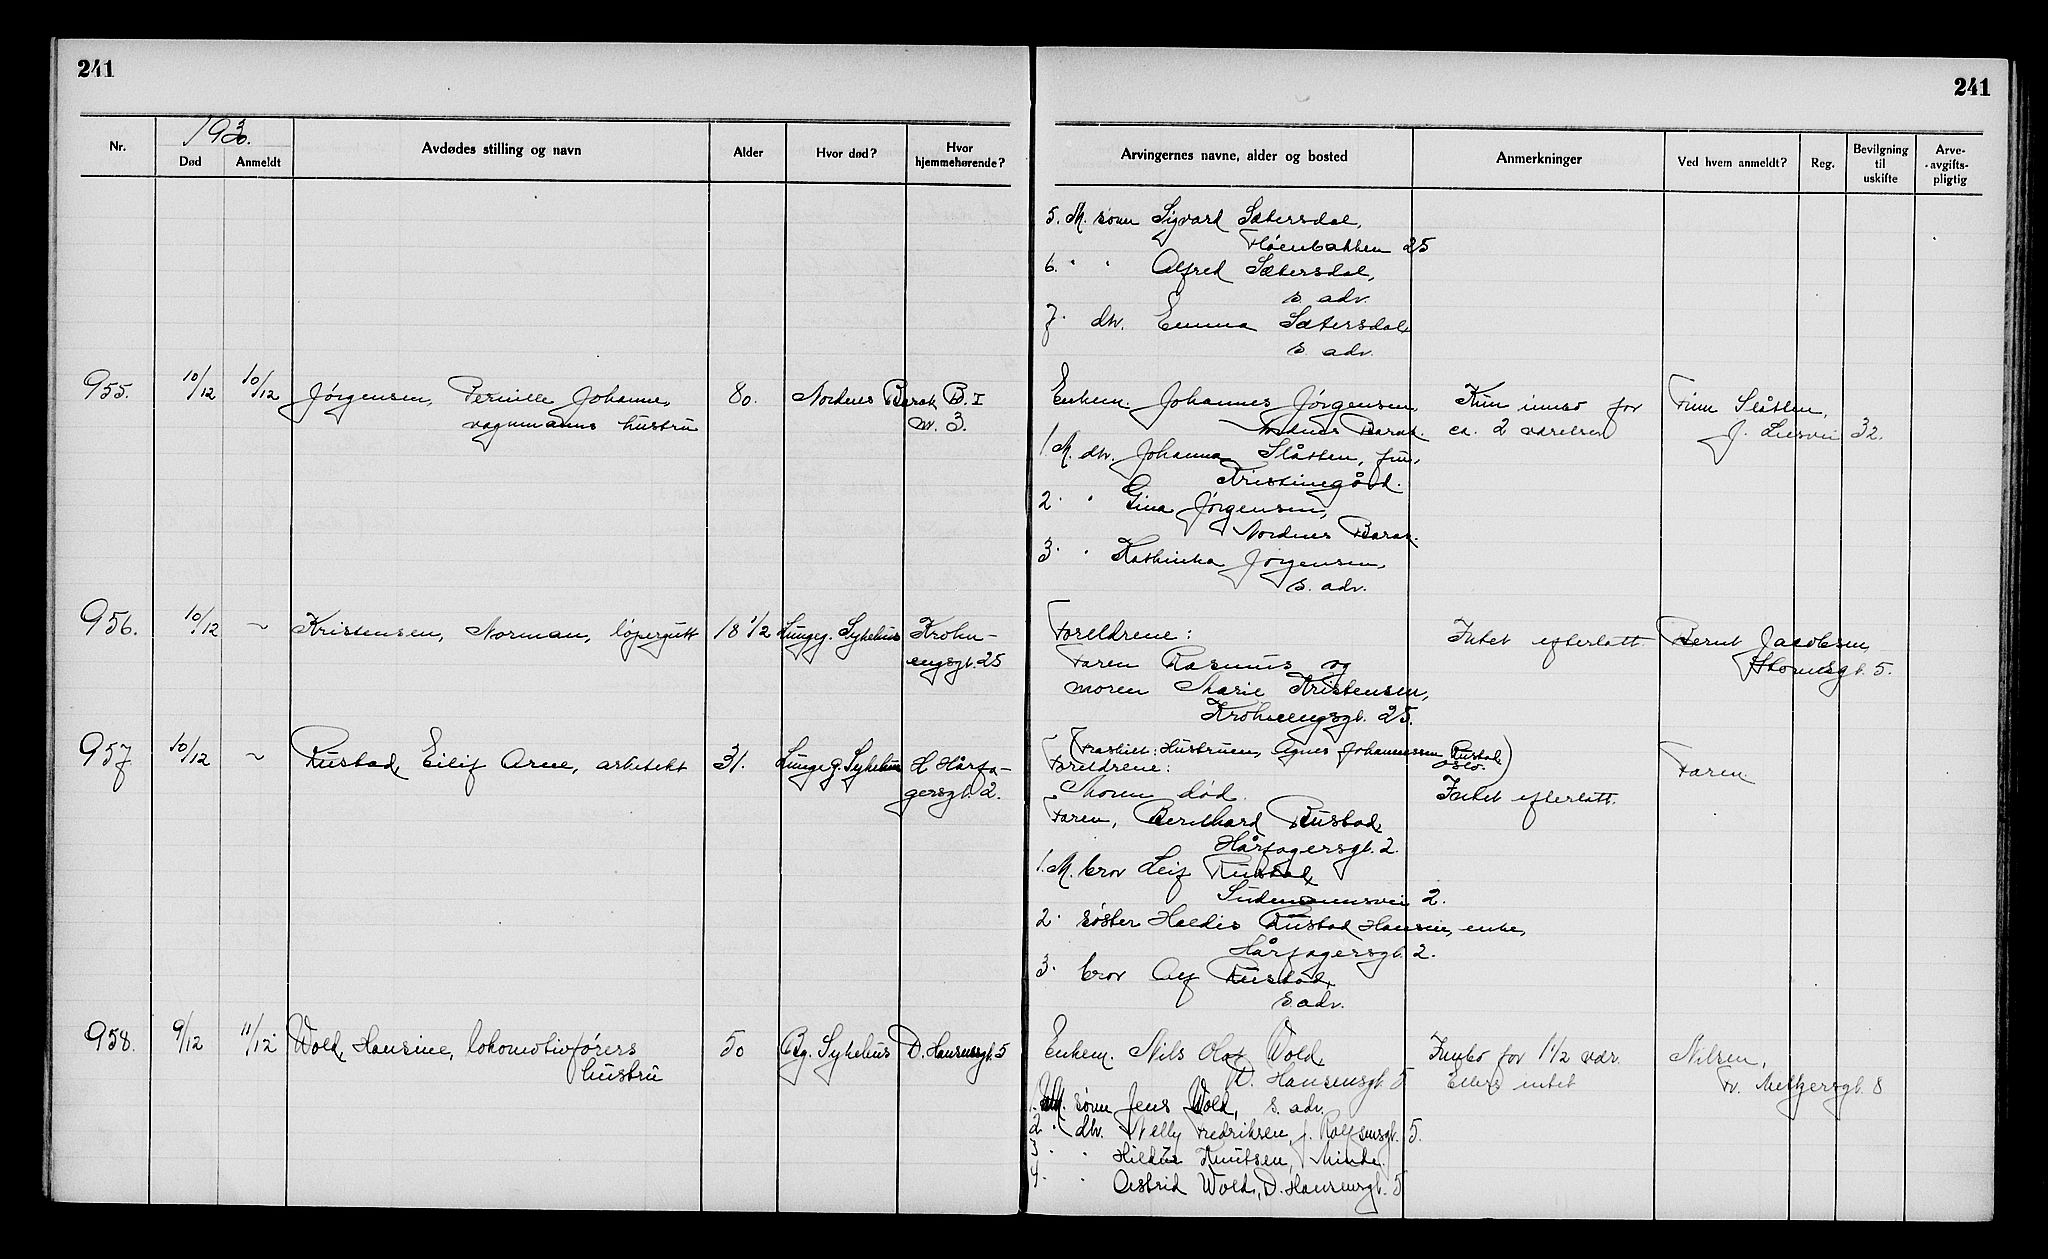 241
241
Nr.
1930.
Død
Anmeldt
Avdødes stilling og navn
Alder
Hvor død?
Hvor hjemmehørende?
Arvingernes navne, alder og bosted
Anmerkninger
Ved hvem anmeldt?
Reg.
Bevilgning til uskifte
Arve-avgifts-pligtig
5. M. sønn Sigvard Sætersdal,
Fløenbakken 25
6. " " Alfred Sætersdal,
s. adr.
7. dtr. Emma Sætersdal,
s. adr.
955. 10/12 10/12 Jørgensen, Pernille Johanne, 80. Nordnes Barak B. I
vognmanns hustru
nr. 3.
Enkem. Johannes Jørgensen
Nordnes Barak.
1. M. dtr. Johanna Slåtten, fru,
Kristinegård.
2. " Gina Jørgensen,
Nordnes Barak.
3. " Kathinka Jørgensen,
s. adr.
Kun innbo for
ca. 2 værelser
Finn Slåtten,
J. Liesvei 32.
956. 10/12 ~ Kristensen, Norman, løpergutt 18 1/2 Lungeg. Sykehus Krohn-
engsgt. 25
Foreldrene:
Faren Rasmus og
moren Marie Kristensen,
Krohnengsgt. 25.
Intet efterlatt.
Bernt Jacobsen,
gt. 5.
957. 10/12 ~ Rustad, Eilif Arne, arkitekt 31. Lungeg. Sykehus H. Hårfa-
gersgt. 2.
(Fraskilt: Hustruen, Agnes Johannessen Rustad
Oslo.)
Foreldrene:
Moren død.
Faren, Bernhard Rustad,
Hårfagersgt. 2.
1. M. bror Leif Rustad,
2.
2. søster Haldis Rustad Hansen, enke,
Hårfagersgt. 2.
3. bror Alf Rustad,
s. adr.
Intet efterlatt.
Faren.
958. 9/12 11/12 Wold, Hansine, lokomotivførers 50 Bg. Sykehus D. Hansensgt. 5
hustru
Enkem. Nils Olaf Wold,
D. Hansensgt. 5
1. M. sønn Jens Wold, s. adr.
2. " dtr. Nelly Fredriksen, J. Rolfsensgt. 5.
3. " Hildur Knutsen, Minde.
4. " Astrid Wold, D. Hansensgt. 5
Innbo for 1 1/2 vær.
Ellers intet
Nilsen,
Fr. Meltzersgt. 8